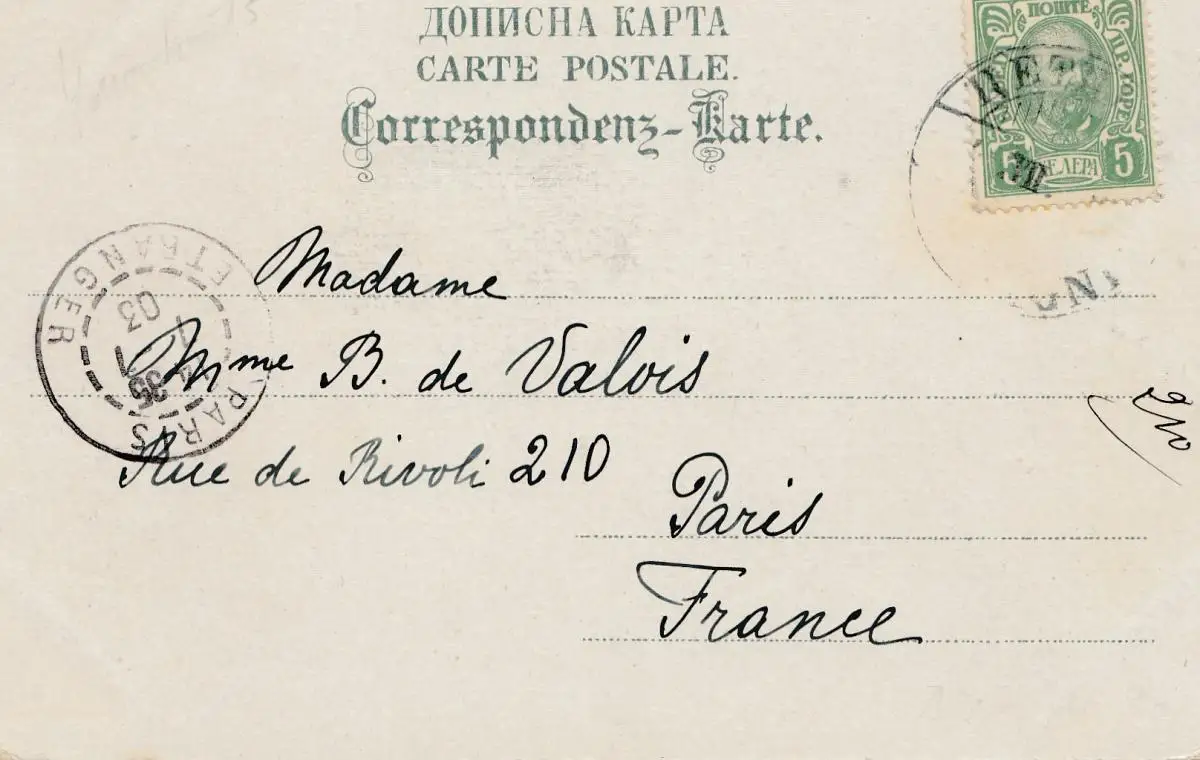 ДОПИСНА КАРТА
CARTE POSTALE.
Correspondenz-Karte.
ПОШТЕ ЦР. ГОРЕ
5 ХЕЛЕРА 5
PARIS ETRANGER
03
Madame
Mme B. de Valois
Rue de Rivoli 210
Paris
France